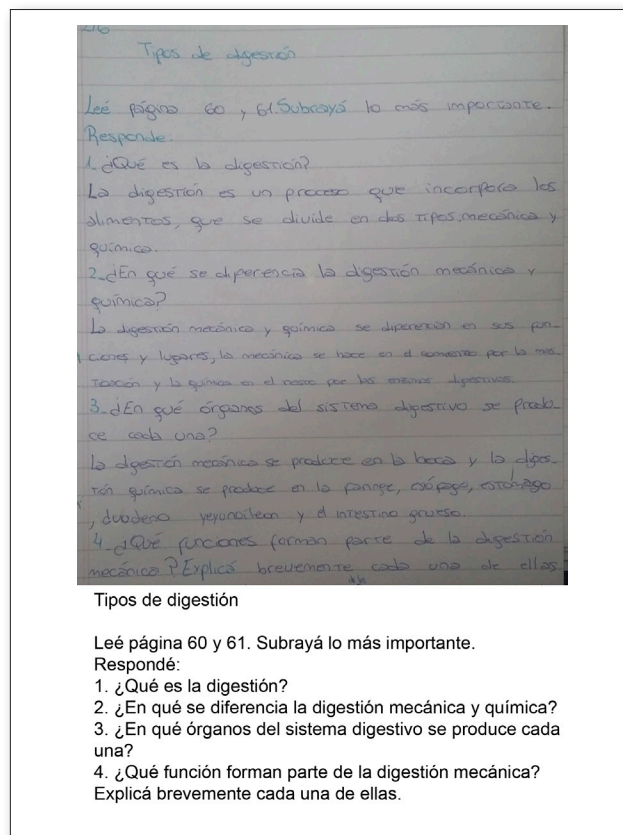 Tipos de digestión
Leé página 60 y 61. Subrayá lo más importante.
Responde.
1. ¿Qué es la digestión?
La digestión es un proceso que incorpora los
alimentos, que se divide en dos tipos, mecánica y
química.
2-¿En qué se diferencia la digestión mecánica y
química?
La digestión mecánica y química se diferencian en sus fun-
ciones y lugares, la mecánica se hace en el comienzo por la mas-
ticación y la química en el resto por las enzimas digestivas.
3-¿En qué órganos del sistema digestivo se produ-
ce cada una?
La digestión mecánica se produce en la boca y la diges-
tión química se produce en la faringe, esófago, estómago
, duodeno yeyunoileon y el intestino grueso.
4-¿Qué funciones forman parte de la digestión
mecánica? Explicá brevemente cada una de ellas
Tipos de digestión
Leé página 60 y 61. Subrayá lo más importante.
Respondé:
1. ¿Qué es la digestión?
2. ¿En qué se diferencia la digestión mecánica y química?
3. ¿En qué órganos del sistema digestivo se produce cada
una?
4. ¿Qué función forman parte de la digestión mecánica?
Explicá brevemente cada una de ellas.